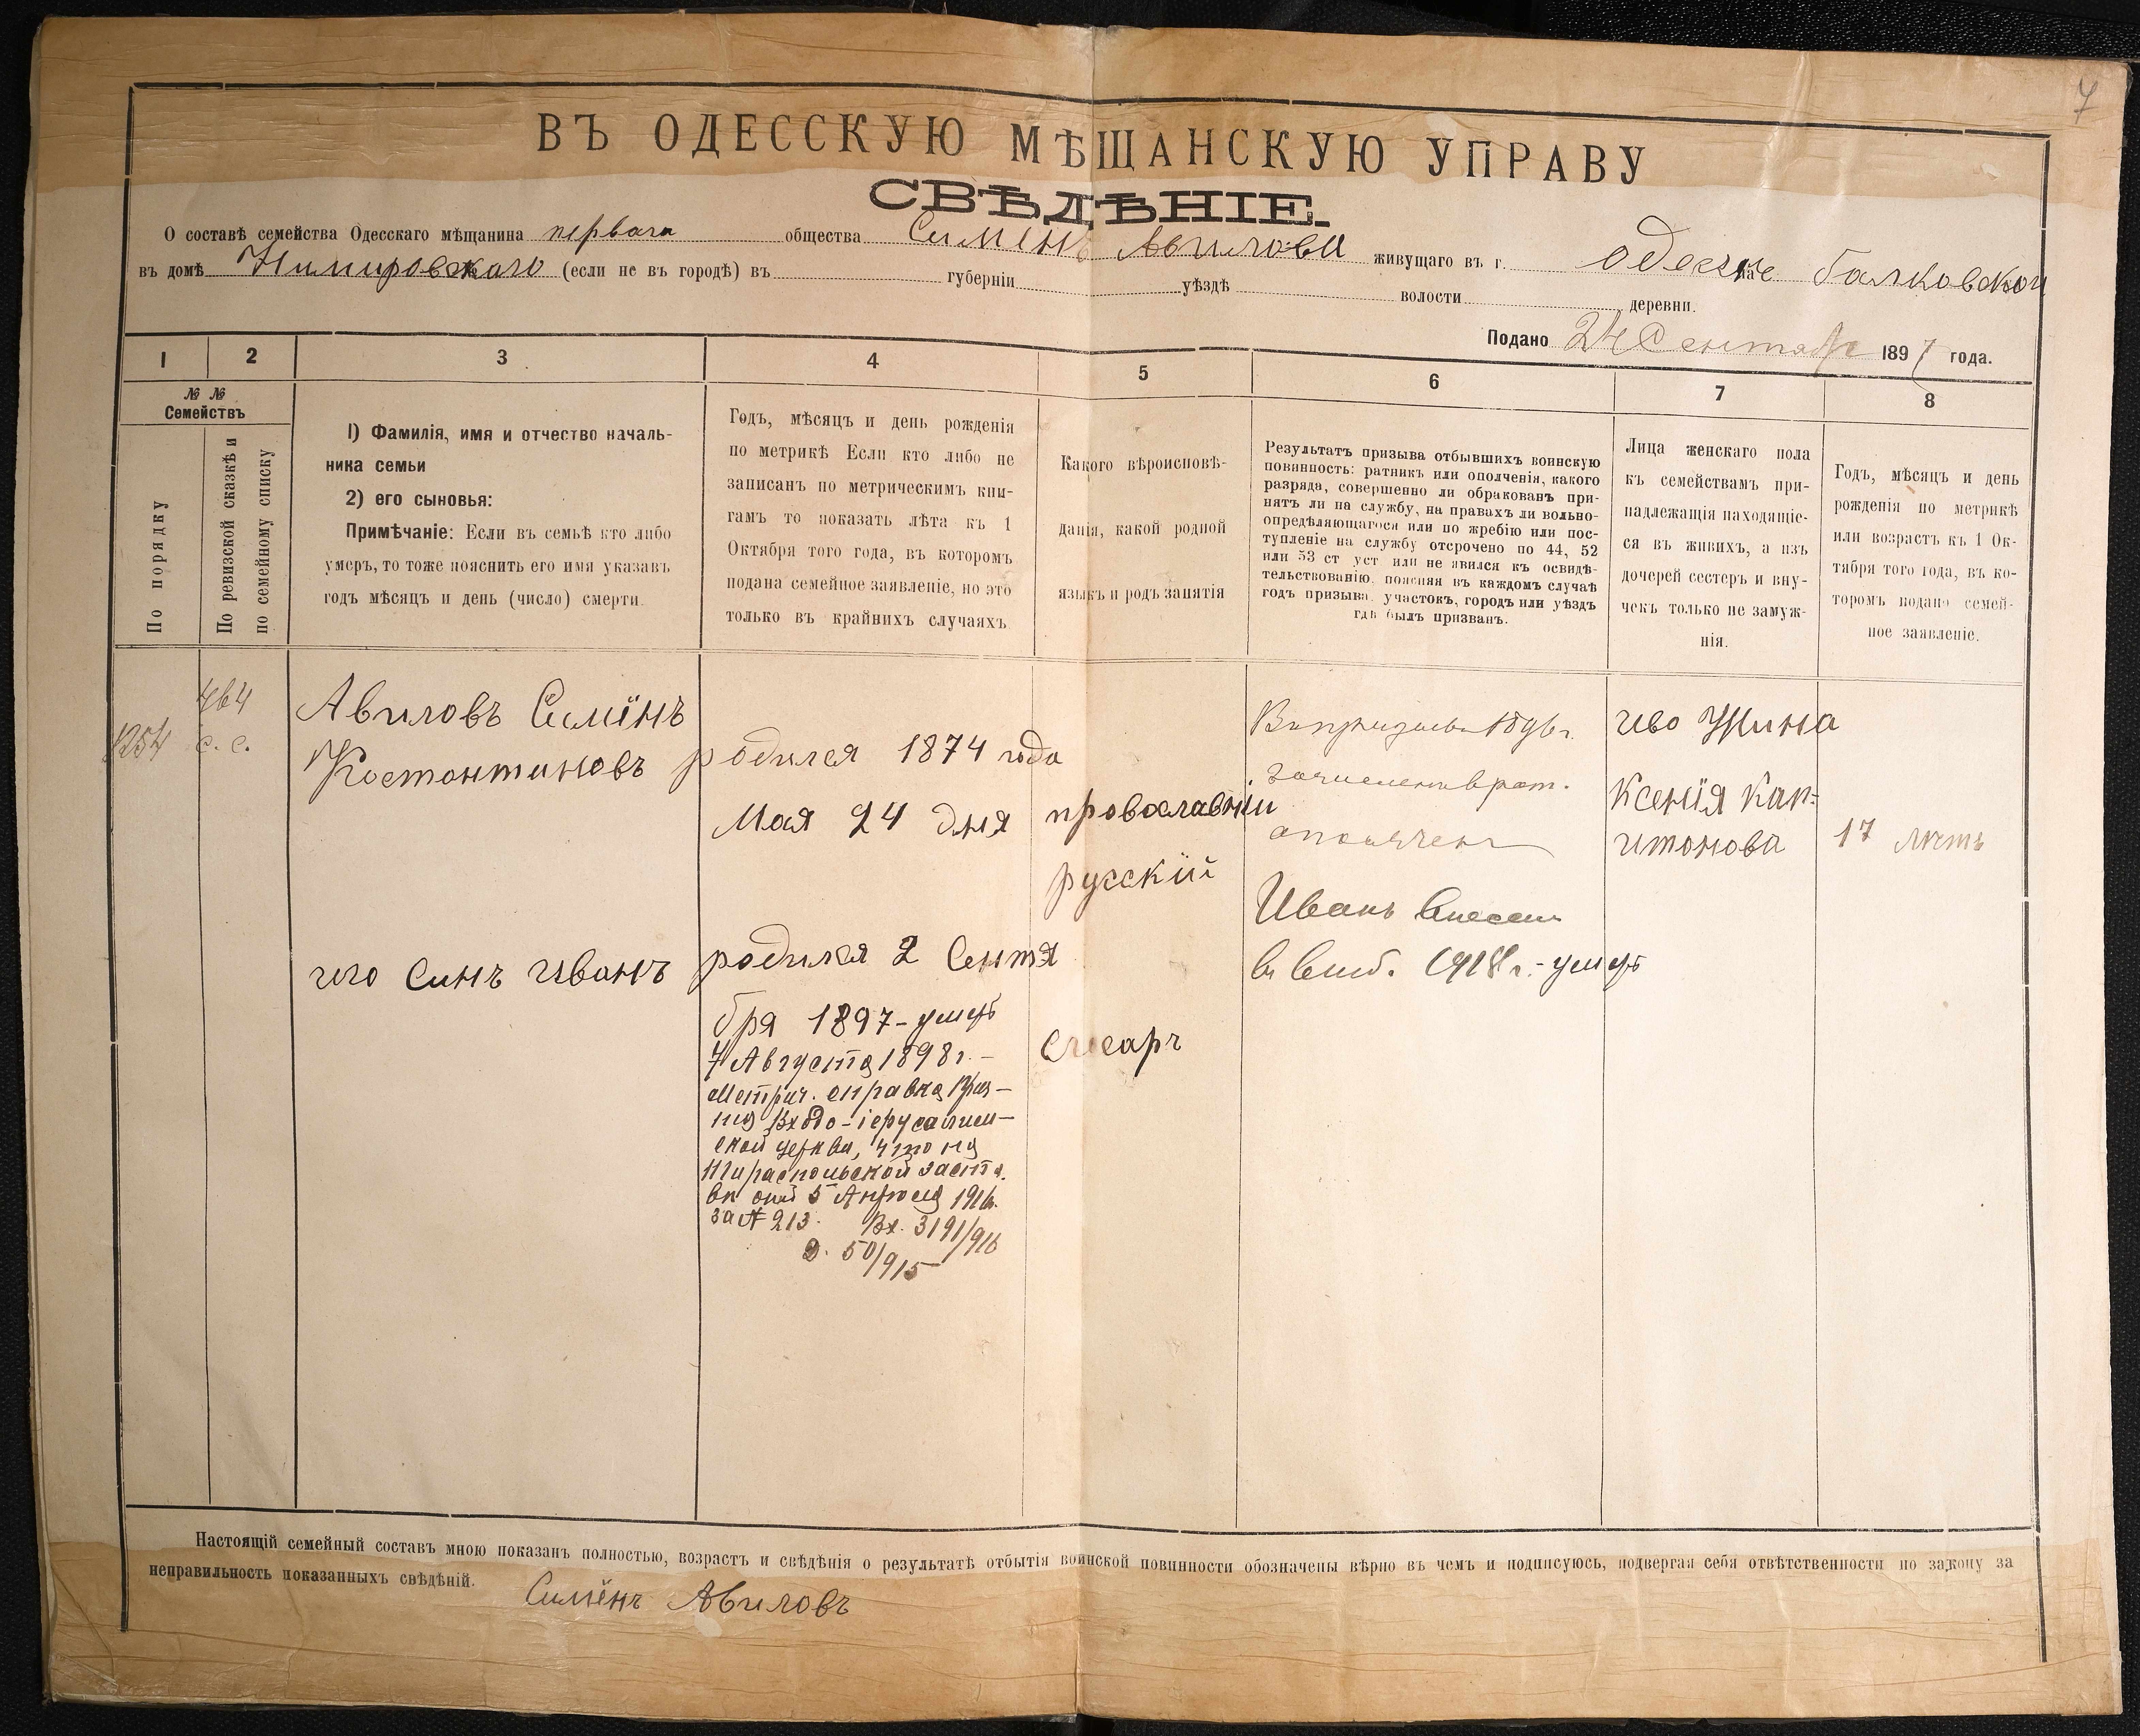 7
ВЪ ОДЕССКУЮ МѢЩАНСКУЮ УПРАВУ
СВѢДѢНІЕ.
О составѣ семейства Одесскаго мѣщанина перваго общества Симёнъ Авилова живущаго въ г. Одессѣ на Балковскои
въ домѣ (если не въ городѣ) въ губерніи уѣздѣ волости деревни.
Подано 24 Сентября 1897 года.
1 2 3 4 5 6 7 8
№ №
Семействъ
По порядку
По ревизской сказкѣ и
по семейному списку
1) Фамилія, имя и отчество началь-
ника семьи
2) его сыновья:
Примѣчаніе: Если въ семьѣ кто либо
умеръ, то тоже пояснить его имя указавъ
годъ мѣсяцъ и день (число) смерти.
Годъ, мѣсяцъ и день рожденія
по метрикѣ Если кто либо не
записанъ по метрическимъ кни-
гамъ то показать лѣта къ 1
Октября того года, въ которомъ
подана семейное заявленіе, но это
только въ крайнихъ случаяхъ
Какого вѣроисповѣ-
данія, какой родной
языкъ и родъ занятія
Результатъ призыва отбывшихъ воинскую
повинность: ратникъ или ополченія, какого
разряда, совершенно ли обракованъ при-
нятъ ли на службу, на правахъ ли вольно-
опредѣляющагося или по жребію или пос-
тупленіе на службу отсрочено по 44, 52
или 53 ст уст или не явился къ освидѣ-
тельствованію, поясняя въ каждомъ случаѣ
годъ призыва, участокъ, городъ или уѣздъ
гдѣ былъ призванъ.
Лица женскаго пола
къ семействамъ при-
надлежащія находящіе-
ся въ живихъ, а изъ
дочерей сестеръ и вну-
чекъ только не замуж-
нія.
Годъ, мѣсяцъ и день
рожденія по метрикѣ
или возрастъ къ 1 Ок-
тября того года, въ ко-
торомъ подано семей-
ное заявленіе.
1254
464
с. с.
Авиловъ Симёнъ
Костонтиновъ
родился 1874 года
Мая 24 дня
провославній
русскій
1896 г.
ополчен
его Жина
Ксенія Кап-
итонова
17 летъ
его Синъ Иванъ
родился 2 Сентя
бря 1897 - умеръ
7 Августа 1898 г. -
Метрич. справка
Входо-іерусалим-
ской церкви, что на
Тираспольской заст.
5 Апрѣля 1916.
за № 213. Вх. 3191/916
д. 50/915
Слесарь
Иванъ
1918 г. - умеръ
Настоящій семейный составъ мною показанъ полностью, возрастъ и свѣдѣнія о результатѣ отбытія воинской повинности обозначены вѣрно въ чемъ и подписуюсь, подвергая себя отвѣтственности по закону за
неправильность показанныхъ свѣдѣній.
Симёнъ Авиловъ